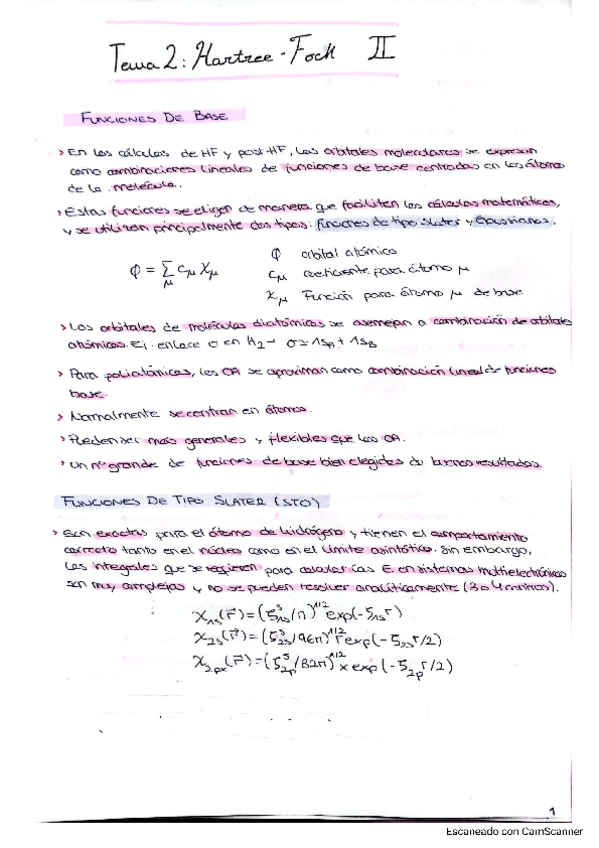 Tema 2: Hartree-Fock II
FUNCIONES DE BASE
> En los cálculos de HF y post-HF, los orbitales moleculares se expresan
como combinaciones lineales de funciones de base centradas en los átomos
de la molécula.
> Estas funciones se eligen de manera que faciliten los cálculos matemáticos,
y se utilizan principalmente dos tipos: funciones de tipo Slater y Gaussianas.
ϕ orbital atómico
ϕ = Σμ cμ χμ
cμ coeficiente para átomo μ
χμ Función para átomo μ de base
> Los orbitales de moléculas diatómicas se asemejan a combinación de orbitales
atómicos. Ej: enlace σ en H2 - σ ≈ 1sA + 1sB
> Para poliatómicas, los OA se aproximan como combinación lineal de funciones
base.
> Normalmente se centran en átomos.
> Pueden ser más generales y flexibles que los OA.
> Un nº grande de funciones de base bien elegidas da buenos resultados.
FUNCIONES DE TIPO SLATER (STO)
> Son exactas para el átomo de hidrógeno y tienen el comportamiento
correcto tanto en el núcleo como en el límite asintótico. Sin embargo,
las integrales que se requieren para calcular las E en sistemas multielectrónicos
son muy complejas y no se pueden resolver analíticamente (3 o 4 centros).
χ1s(r⃗) = (ζ³1s/π)^1/2 exp(-ζ1s r)
χ2s(r⃗) = (ζ⁵2s/96π)^1/2 r exp(-ζ2s r/2)
χ2px(r⃗) = (ζ⁵2p/32π)^1/2 x exp(-ζ2p r/2)
1
Escaneado con CamScanner